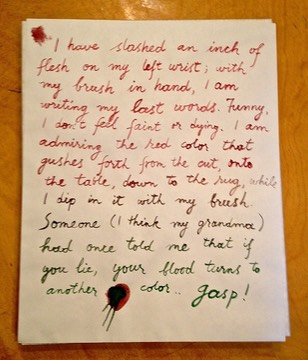 I have slashed an inch of
flesh on my left wrist; with
my brush in hand, I am
writing my last words. Funny,
I don't feel faint or dying. I am
admiring the red color that
gushes forth from the cut, onto
the table, down to the rug, while
I dip in it with my brush.
Someone (I think my grandma)
had once told me that if
you lie, your blood turns to
another color.. gasp!